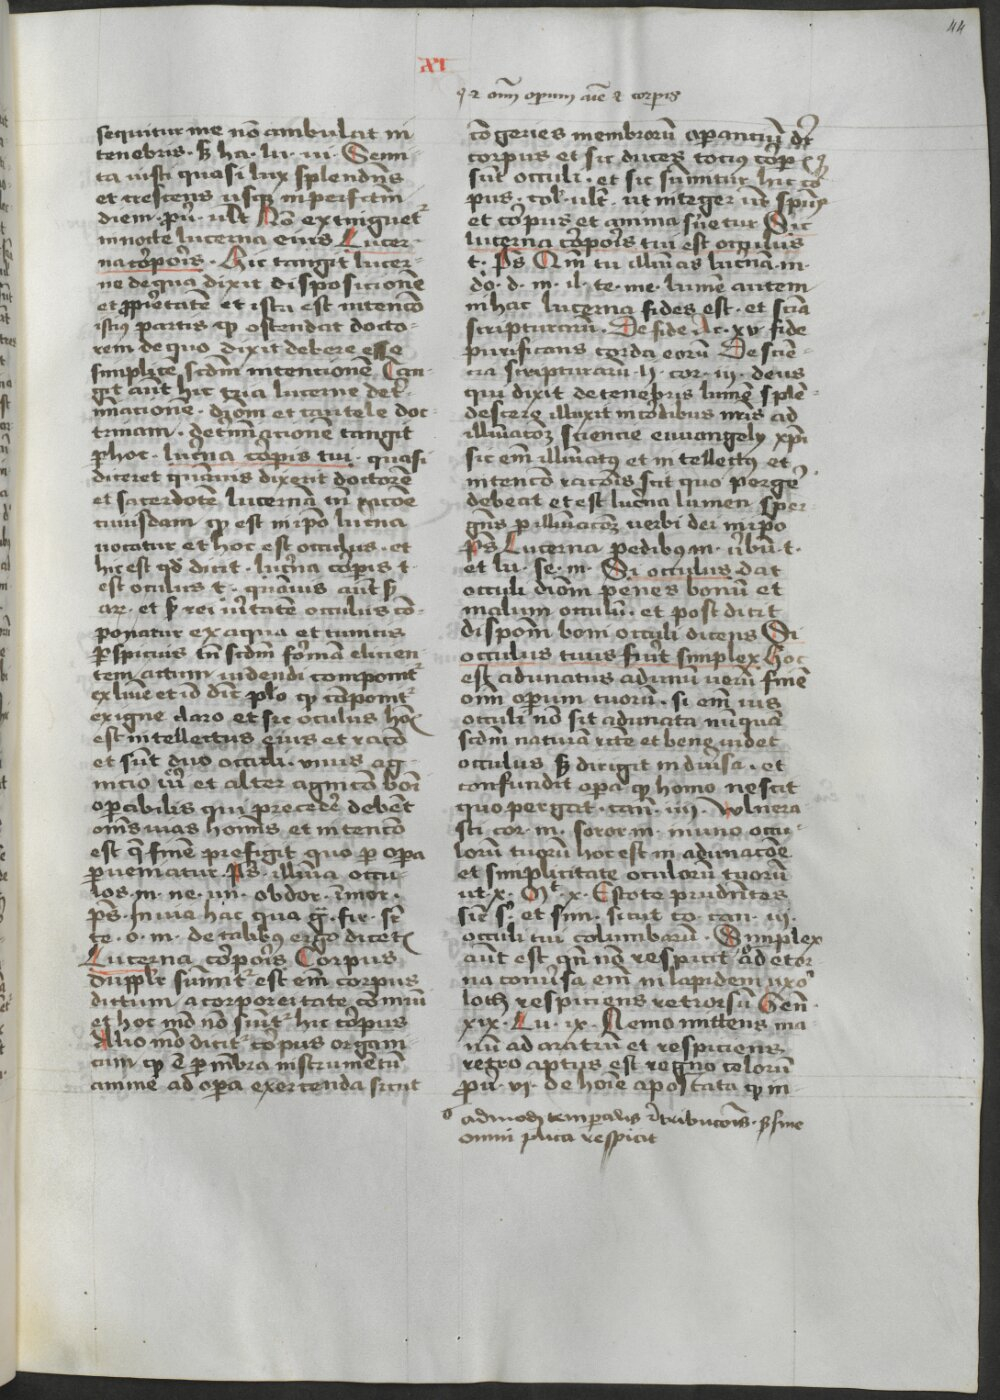 44
XI
q̄ ⁊ om̄ī operum aīe ⁊ corp̄is
sequitur me nō ambulat in
tenebris · ꝫ ha · lu · iii · Semi
ta iusti quasi lux splendēs
et crescens usqꝫ in perfectā
diem · ꝓū · ult Nō extinguet᷑
in nocte lucerna eius Lucer
na corpoīs · Hic tangit lucer
ne de qua dixit disposicionē
et ꝓprietatē et ista est intencō
istiꝰ partis ꝙ ostendat docto
rem de quo dixit debere esse
simplicē scdm̄ intencionē Tan
git aūt hic tria lucerne det̄
minacionē · diōm et cautele doc
trinam · det̄minacionē tangit
ꝑ hoc · lucīna corp̄is tui · quasi
diceret quāuis dixerit doctorē
et sacerdotē lucernā tn̄ racōe
cuiusdam ꝙ est in ip̄o lucīna
uocatur et hoc est occulus · et
hic est qd̄ dicit · lucīna corp̄is t
est oculus t · quāuis aūt ꝫ
ar · et ꝫ rei u̾itatē occulus cō
ponatur ex aqua et tunicis
ꝑspicuis tn̄ scdm̄ formā elicien
tem actum uidendi componit᷑
ex lumīe et id dīc plo ꝙ cōponit᷑
ex igne claro et sic oculus hoīs
est intellectus eius et racō
et sūt duo occuli · unus ag
nicio uī et alter agnicō boni
oꝑabilis qui precedē debēt
om̄s uias hominis et intencō
est q̄ finē prefigit quo ꝑ opera
ꝑueniatur Pˢ · illūīa occu
los · m · ne · un̄ · obdor · ī mor ·
pˢ · In uia hac qua g̅ · fir · sr̄
te · o · m · de talibꝰ ergo dicet᷑
Lucerna corpoīs Corpus
duppl̄r sūmit᷑ est em̄ corpus
dictum a corporeitate cōmūi
et hoc mō nō sumit᷑ hic corpus
Alio mō dicit᷑ corpus organi
cum ꝙ ē ꝑ mēbra instrumentū
anime ad oꝑa exercenda sicut
cōgeries membrorū operanciū dr̄
corpus et sic duces tociꝰ corp̄is
sūt occuli · et sic sūmitur hic co
pus · col · ult · ut integer ūr spūs
et corpus et anima suetur Sic
lucerna corpoīs tui est occulus
t · Pˢ Qm̄ tu illūīas lucīnā m
do · d · m · il · te · me · lumē autem
in hac lucerna fides est · et scīa
scripturarū · De fide Ac · xv fide
purificans corda eorū De sciē
cia scripturarū · ii · cor · iii · deus
qui dixit de tenebris lumē splē
descere illuxit in cordibus nr̄is ad
illūīacōꝫ sciencie euuangely xp̄i
sic em̄ illūīatꝰ et intellectus et
intencō racōis scit quo perge̾
debeat et est lucīna lumen sper
gēs ꝑ illūīacōꝫ uerbi dei in ip̄o
Pˢ Lucerna pedibꝰ m · u̾bū · t ·
et lu · se · m · Si occulus dat
occuli diōm penes bonū et
malum occulū · et post dicit
dispōm̄ boni occuli dicens Si
occulus tuus fu̾it simplex Hoc
est adunatus ad unū uerū finē
om̄i operum tuorū · si em̄ uis
occuli nō sit adunata nūquā
scdm̄ naturā rcē et bene uidet
occulus ꝫ dirigit in diu̾sa · et
confundit oꝑa ꝙ homo nescit
quo pergat · can̄ · iiii · Vulnera
sti cor · m · soror m · in uno occu
lorū tuorū hoc est in adunacōe
et simplicitate oculorū tuorū
ut x · Mᵗ · x · Estote prudentes
sic̄ sꝰ · et sim · sicut co · can · iii ·
occuli tui columbarū · Simplex
aūt est qn̄ nō respicit ad etor
na conu̾sa em̄ in lapidem uxo̾
loth respiciens retrorsū Gen̄
xix · Lu · ix · Nemo mittens ma
nū ad aratrū et respiciens
retro aptus est regno celorū
ꝓū · vi · de hoīe apostata ꝙ in
admodū temporalis r̄tribucōis · ꝫ sine
omni plica respicit